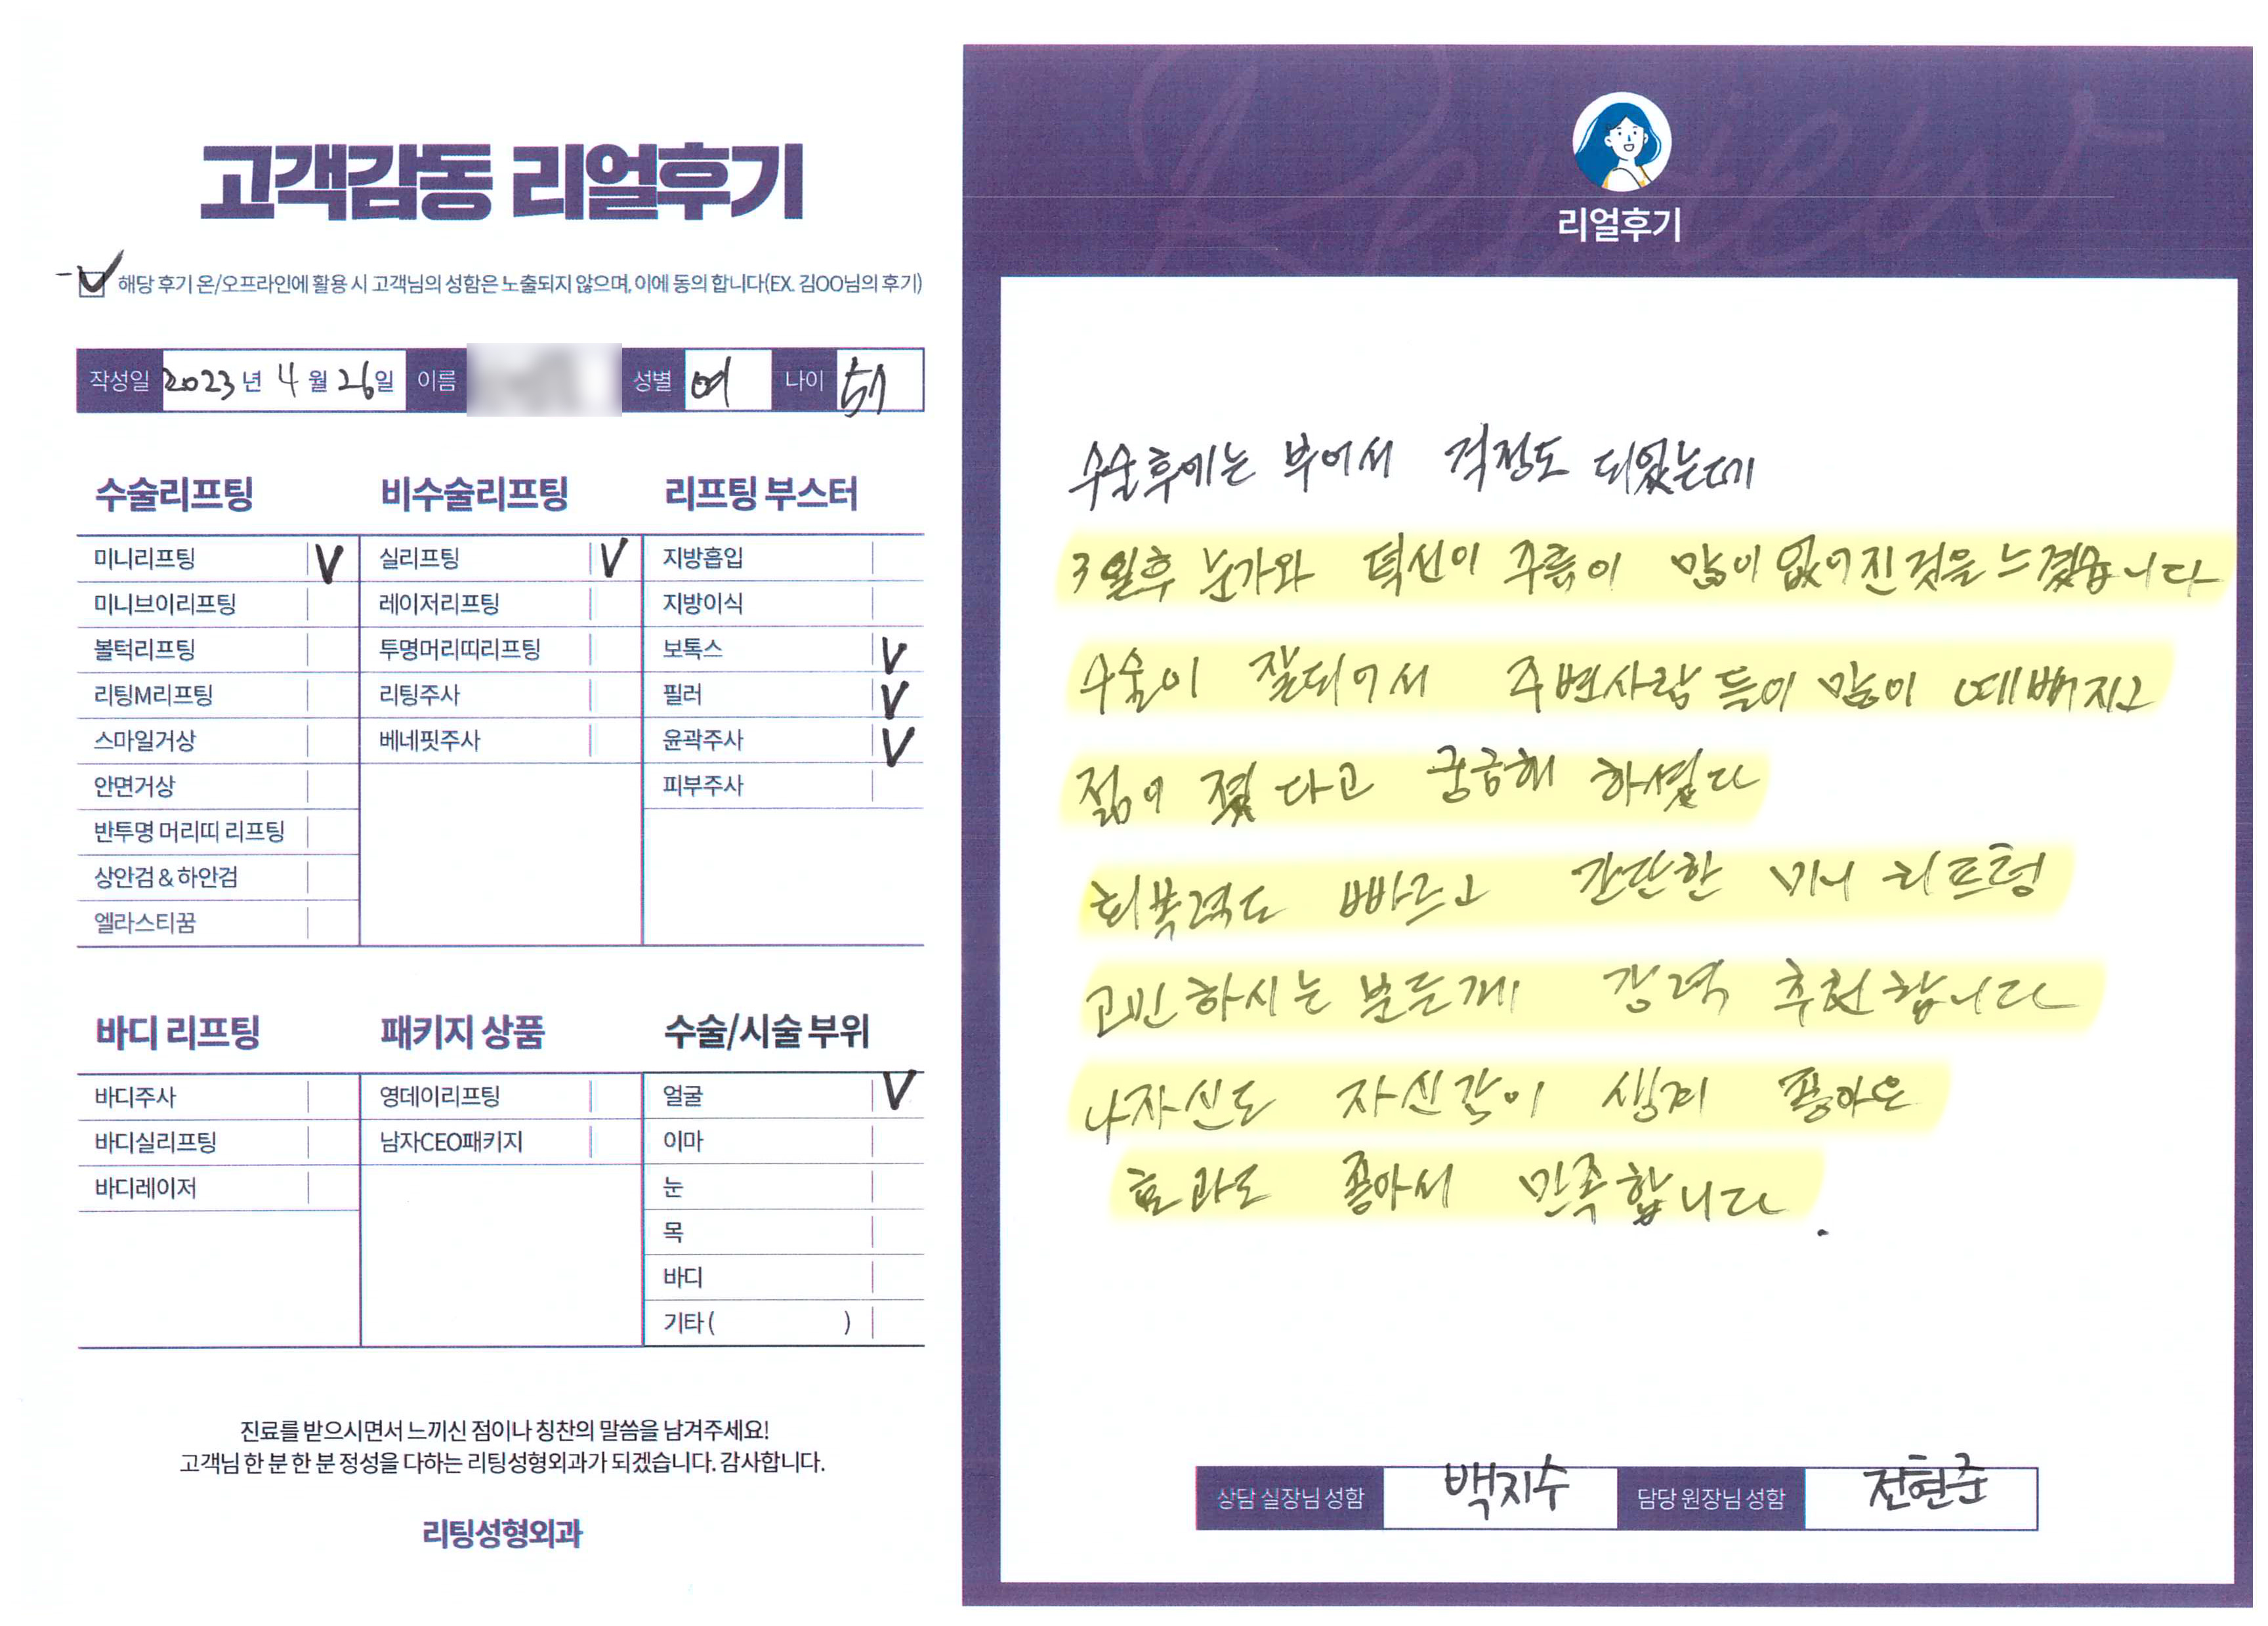 고객감동 리얼후기
해당 후기 온/오프라인에 활용 시 고객님의 성함은 노출되지 않으며, 이에 동의 합니다(EX. 김OO님의 후기)
작성일 2023년 4월 26일 이름 성별 여 나이
수술리프팅
미니리프팅 V
미니브이리프팅
볼턱리프팅
리팅M리프팅
스마일거상
안면거상
반투명 머리띠 리프팅
상안검 & 하안검
엘라스티꿈
비수술리프팅
실리프팅 V
레이저리프팅
투명머리띠리프팅
리팅주사
베네핏주사
리프팅 부스터
지방흡입
지방이식
보톡스 V
필러 V
윤곽주사 V
피부주사
바디 리프팅
바디주사
바디실리프팅
바디레이저
패키지 상품
영데이리프팅
남자CEO패키지
수술/시술 부위
얼굴 V
이마
눈
목
바디
기타 ( )
진료를 받으시면서 느끼신 점이나 칭찬의 말씀을 남겨주세요!
고객님 한 분 한 분 정성을 다하는 리팅성형외과가 되겠습니다. 감사합니다.
리팅성형외과
Review
리얼후기
수술후에는 부어서 걱정도 되었는데
3일후 눈가와 턱선이 주름이 많이 없어진것을 느꼈습니다
수술이 잘되어서 주변사람들이 많이 예뻐지고
젊어 졌다고 궁금해 하셨다
회복력도 빠르고 간단한 미니 리프팅
고민하시는 분들께 강력 추천합니다
나자신도 자신감이 생겨 좋아은
효과도 좋아서 만족합니다.
상담 실장님 성함 백지수 담당 원장님 성함 전현준